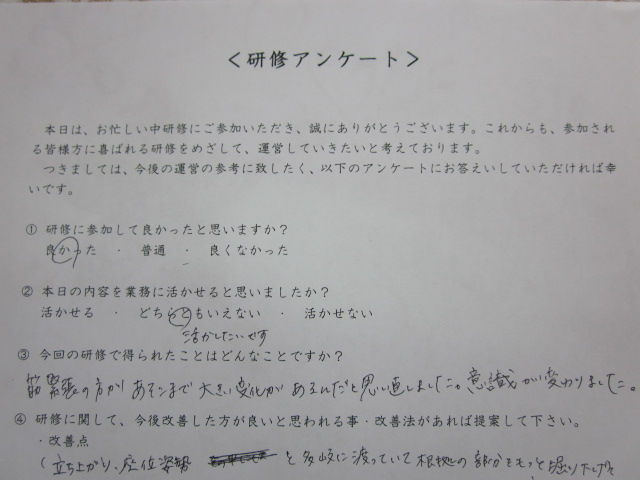 ＜研修アンケート＞
本日は、お忙しい中研修にご参加いただき、誠にありがとうございます。これからも、参加され
る皆様方に喜ばれる研修をめざして、運営していきたいと考えております。
つきましては、今後の運営の参考に致したく、以下のアンケートにお答えいしていただければ幸
いです。
① 研修に参加して良かったと思いますか？
良かった ・ 普通 ・ 良くなかった
② 本日の内容を業務に活かせると思いましたか？
活かせる ・ どちらともいえない ・ 活かせない
活かしたいです
③ 今回の研修で得られたことはどんなことですか？
筋緊張の方が あそこまで 大きい変化が あるんだと思い直しました。意識が変わりました。
④ 研修に関して、今後改善した方が良いと思われる事・改善法があれば提案して下さい。
・改善点
（立ち上がり、座位姿勢 と多岐に渡っていて 根拠の部分をもっと掘り下げて